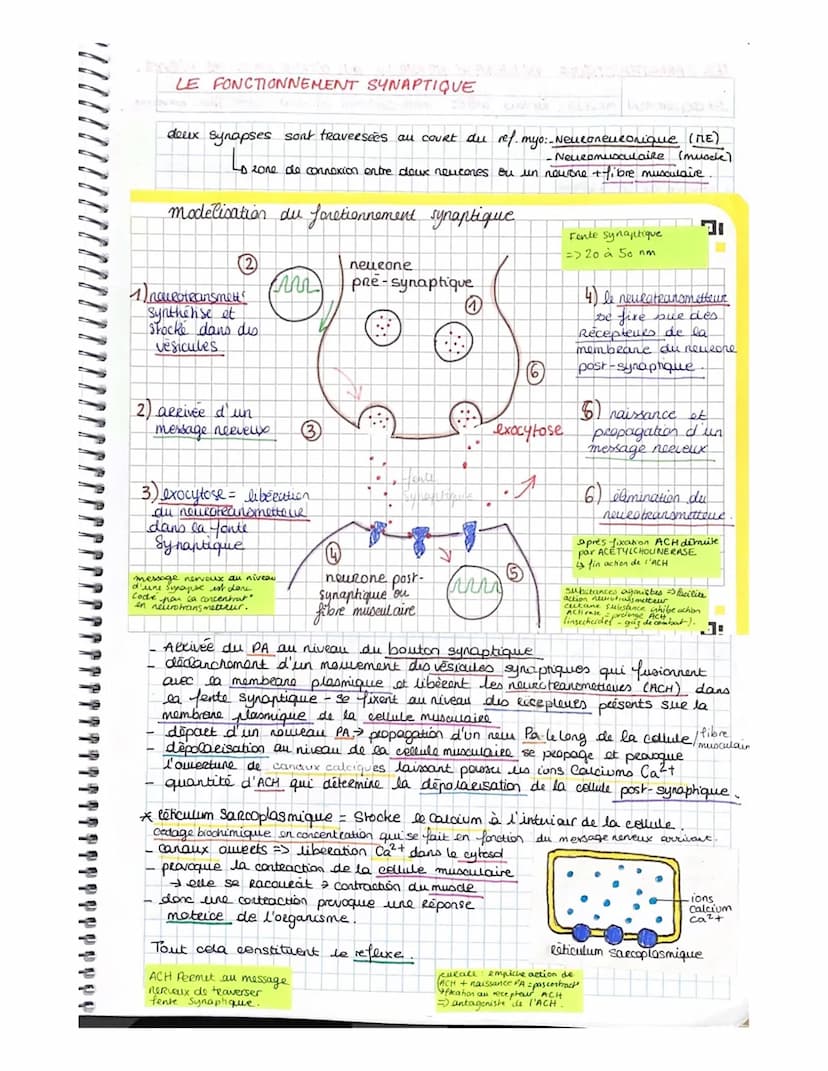 LE FONCTIONNEMENT SYNAPTIQUE
deux synapses sont traversées au court du ref. myo: - Neuroneuronique (ME)
- Neuromusculaire (muscle)
↳ zone de connexion entre deux neurones ou un neurone + fibre musculaire.
Modélisation du fonctionnement synaptique
Fente synaptique
=> 20 à 50 nm
②
neurone
pré-synaptique
①
1) neurotransmett^r
synthétisé et
stocké dans des
vésicules
4) le neurotransmetteur
se fixe sue des
Récepteurs de la
membrane du neurone
post-synaptique.
⑥
2) arrivée d'un
message nerveux
③
exocytose
5) naissance et
propagation d'un
message nerveux
3) exocytose = libération
du neurotransmetteur
dans la fente
Synaptique
fente
synaptique
6) élimination du
neurotransmetteur.
④
neurone post-
synaptique ou
fibre musculaire
⑤
après fixation ACH détruite
par ACÉTYLCHOLINERASE
↳ fin action de l'ACH
message nerveux au niveau
d'une synapse est donc
codé par la concentrat°
en neurotransmetteur.
substances agonistes => facilite
action neurotransmetteur
substance inhibe action
ACH = prolonge ACH
(insecticides - gaz de combat).
- Arrivée du PA au niveau du bouton synaptique
- déclanchement d'un mouvement des vésicules synaptiques qui fusionnent
avec la membrane plasmique et libèrent les neurotransmetteurs (ACH) dans
la fente synaptique - se fixent au niveau des récepteurs présents sur la
membrane plasmique de la cellule musculaire
- départ d'un nouveau PA → propagation d'un nouv Pa le long de la cellule / fibre musculair
- dépolarisation au niveau de la cellule musculaire se propage et provoque
l'ouverture de canaux calciques laissant passer les ions Calciums Ca²⁺
- quantité d'ACH qui détermine la dépolarisation de la cellule post-synaptique.
* Réticulum Sarcoplasmique = Stocke le Calcium à l'intérieur de la cellule.
Codage biochimique en concentration qui se fait en fonction du message nerveux arrivant.
- canaux ouverts => libération Ca²⁺ dans le cytosol
- provoque la contraction de la cellule musculaire
→ elle se racourcit → contraction du muscle
- donc une contraction provoque une réponse
motrice de l'organisme.
ions
calcium
Ca²⁺
Réticulum sarcoplasmique
Tout cela constituent le réflexe.
ACH Permet au message
nerveux de traverser
fente synaptique.
curare : empêche action de
ACH + naissance PA = pas contract°
+ fixation au récepteur ACH
=> antagoniste de l'ACH.